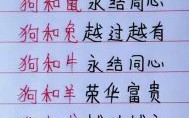 狗和鼠 永结同心
狗和兔 越过越有
狗和牛 永结同心
狗和羊 荣华富贵